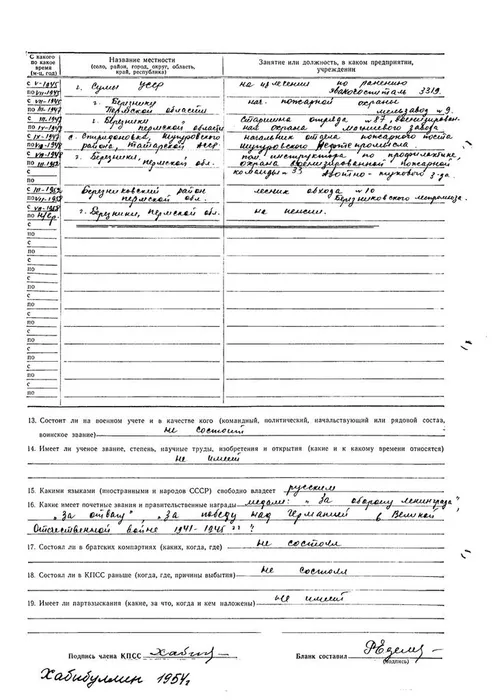 С какого по какое время (м-ц, год)
Название местности
(село, район, город, округ, область, край, республика)
Занятие или должность, в каком предприятии, учреждении
с V-1945
по VII-1945
г. Сумы УССР
на излечении по ранению
эвакогоспиталь 3319.
с VII-1945
г. Березники
Пермской области
нач. пожарной охраны
мельзавод № 9.
г. Березники
Пермской области
Старшина отряда № 87, военизирован.
ная охрана
завода
с. Спиридоновка, Шугуровского
района, Татарской АССР.
начальник отдела пожарного поста
Шугуровского Нефтепромысла.
г. Березники, Пермской обл.
пом. инструктора по профилактике,
охрана военизированной пожарной
команды - 33
Березниковский район
Пермской обл.
лесник обхода № 10
Березниковского леспромхоза.
г. Березники, Пермской обл.
на пенсии.
с
по
с
по
с
по
с
по
с
по
с
по
с
по
с
по
с
по
с
по
13. Состоит ли на военном учете и в качестве кого (командный, политический, начальствующий или рядовой состав,
воинское звание) не состоит
14. Имеет ли ученое звание, степень, научные труды, изобретения и открытия (какие и к какому времени относятся)
не имеет
15. Какими языками (иностранными и народов СССР) свободно владеет русским
16. Какие имеет почетные звания и правительственные награды медали: „За оборону Ленинграда“,
„За отвагу“, „За победу над Германией в Великой
Отечественной войне 1941-1945 гг“
17. Состоял ли в братских компартиях (каких, когда, где) не состоял
18. Состоял ли в КПСС раньше (когда, где, причины выбытия) не состоял
19. Имеет ли партвзыскания (какие, за что, когда и кем наложены) не имеет
Подпись члена КПСС
Бланк составил
(подпись)
Хабибуллин 1954г